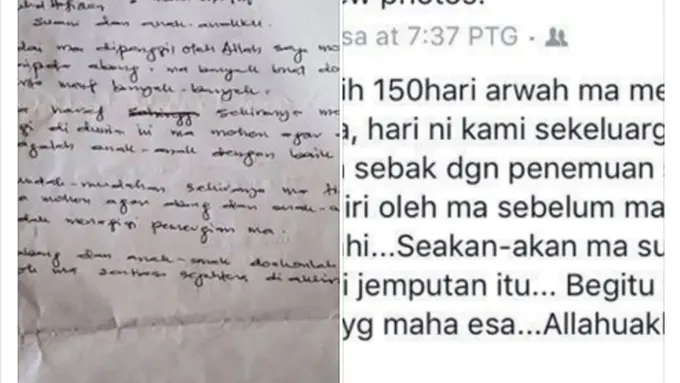 Suami dan anak-anakku.
ma dipanggil oleh Allah saya mo
abang, ma banyak buat do
maaf banyak-banyak.
sekiranya
di dunia ini ma mohon agar
anak-anak dengan baik
mudah-mudahan sekiranya ma
mohon agar abang dan anak-a
menangisi pemergian ma.
abang dan anak-anak doakanlah
ma sentiasa sejahtera di akhir
w photos.
sa at 7:37 PTG ·
ih 150hari arwah ma me
a, hari ni kami sekeluarg
sebak dgn penemuan
iri oleh ma sebelum ma
hi...Seakan-akan ma su
i jemputan itu... Begitu
yg maha esa...Allahuakl